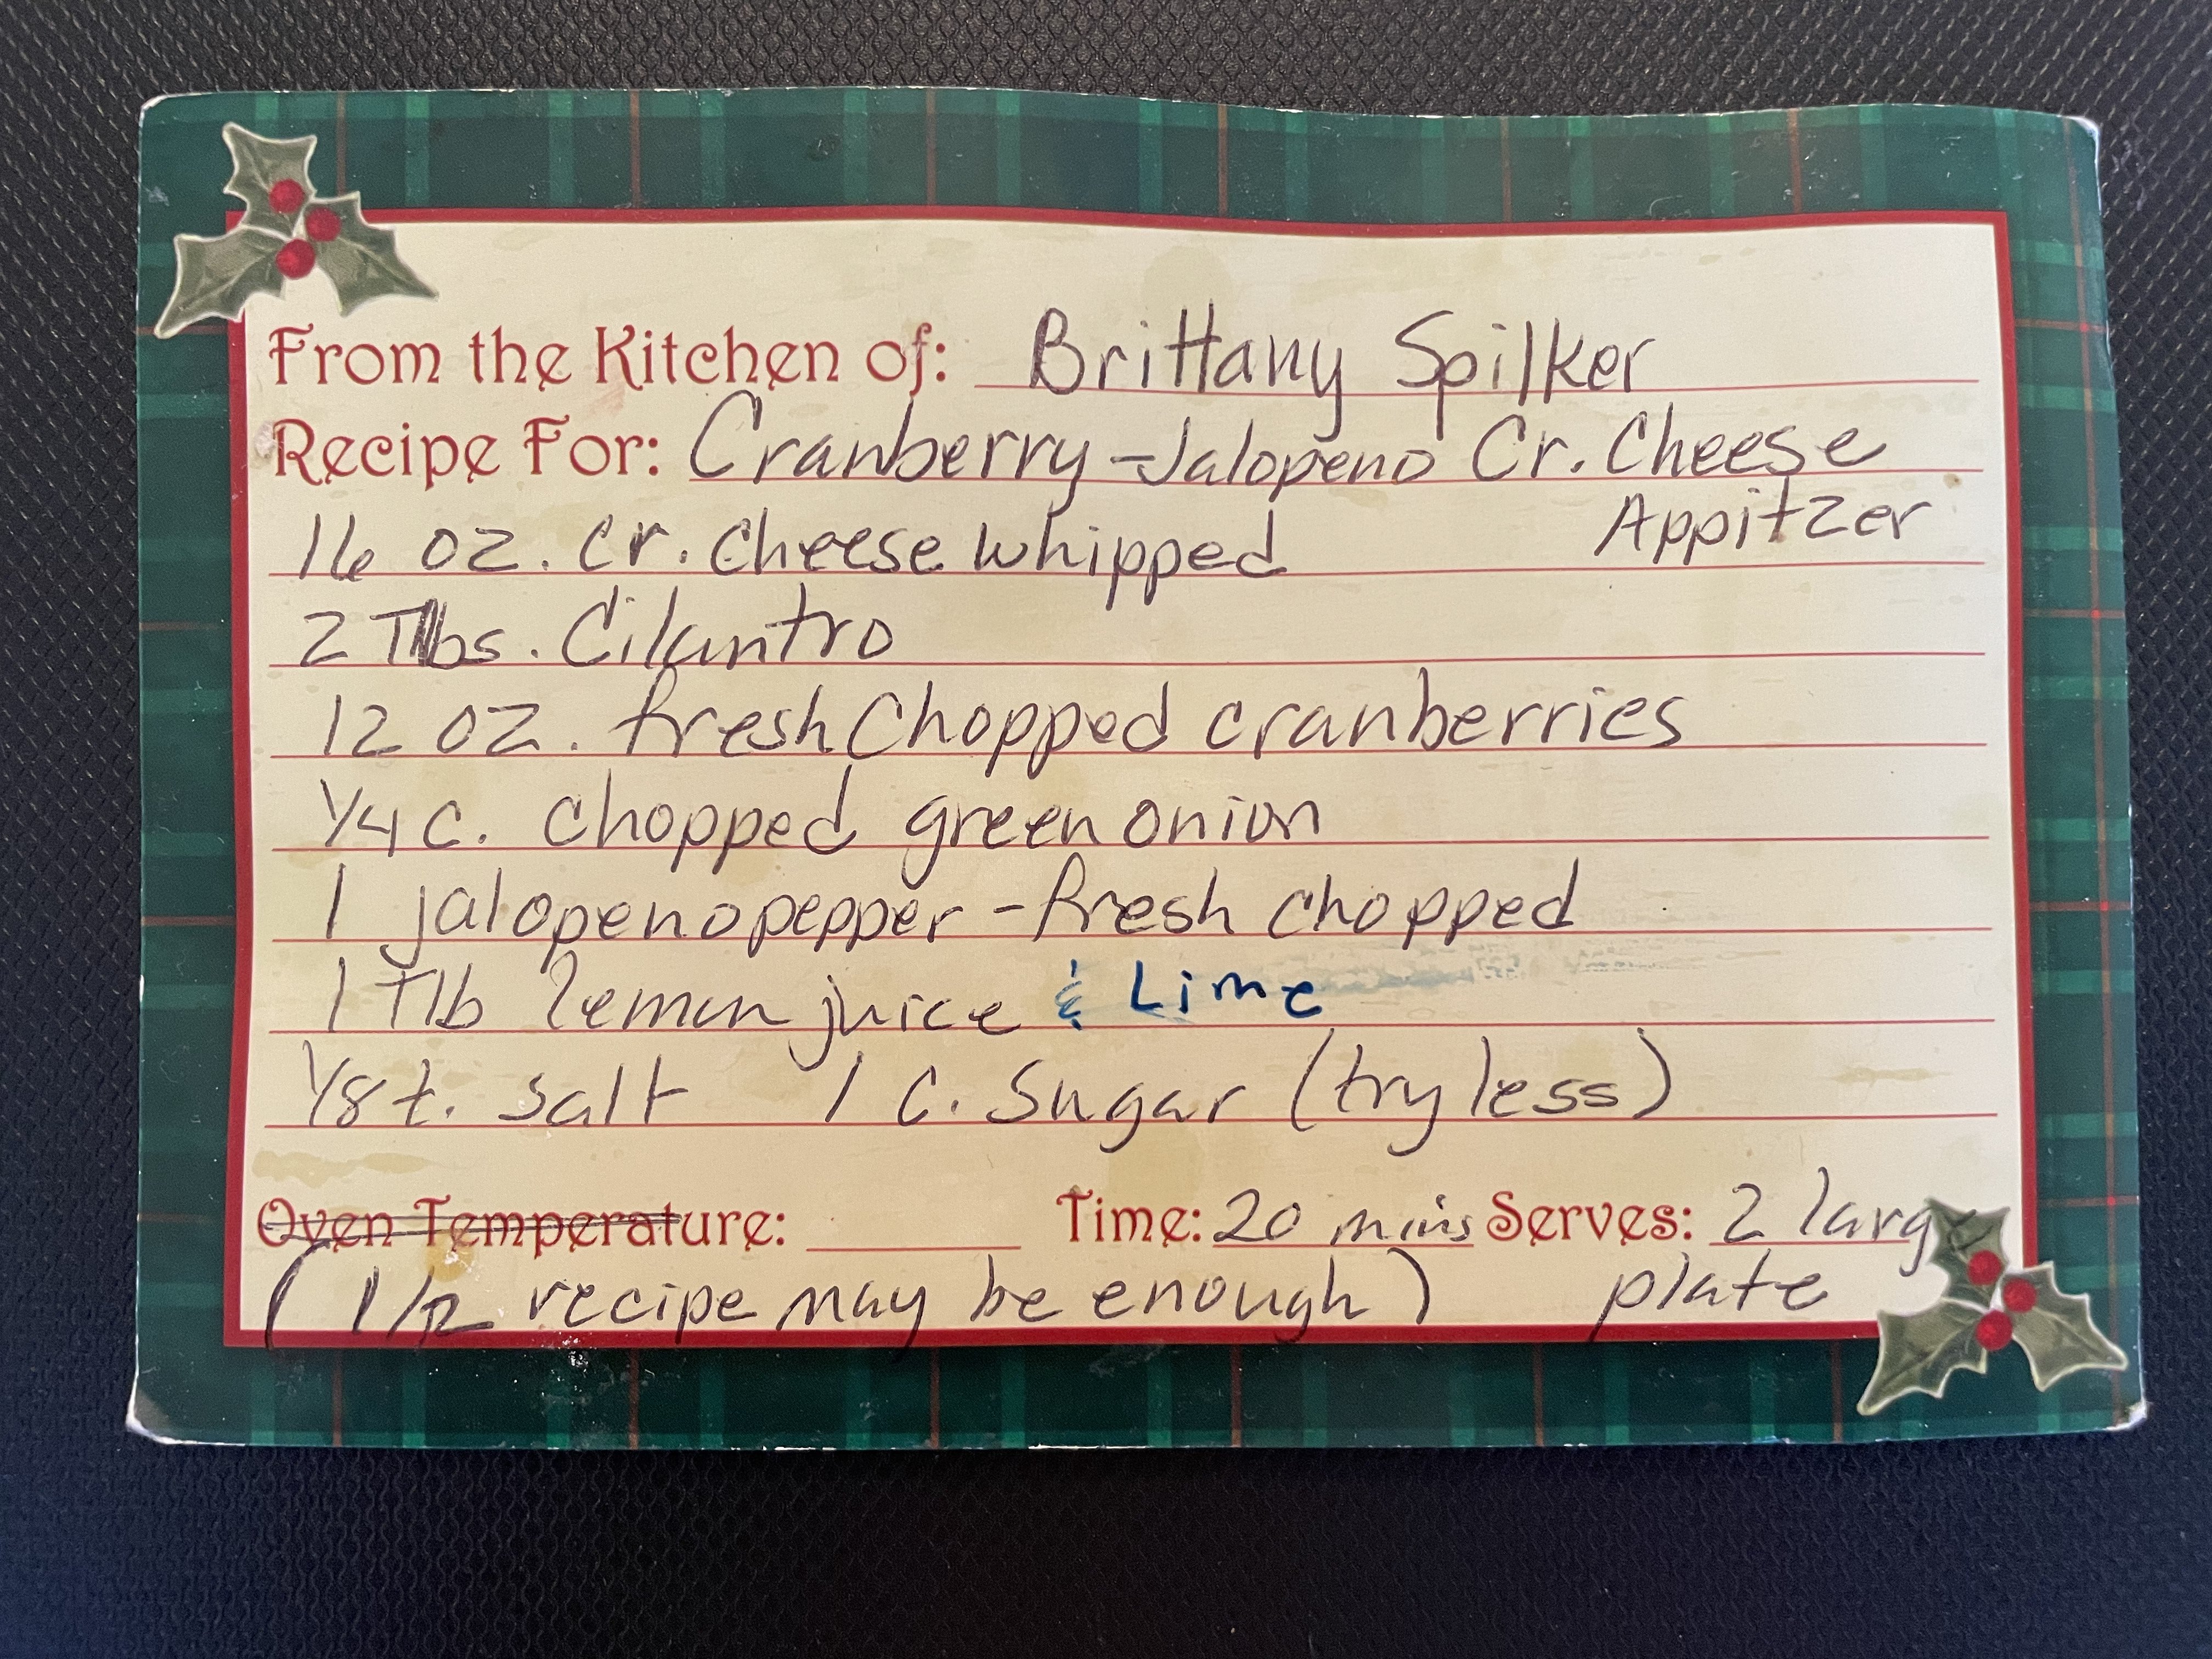 From the Kitchen of: Brittany Spilker
Recipe For: Cranberry-Jalopeno Cr. Cheese
Appitzer
16 oz. cr. cheese whipped
2 Tlbs. Cilantro
12 oz. fresh Chopped cranberries
1/4 c. chopped green onion
1 jalopeno pepper - fresh chopped
1 Tlb lemon juice & Lime
1/8 t. salt 1 C. Sugar (try less)
Oven Temperature: Time: 20 mins Serves: 2 large
(1/2 recipe may be enough) plate